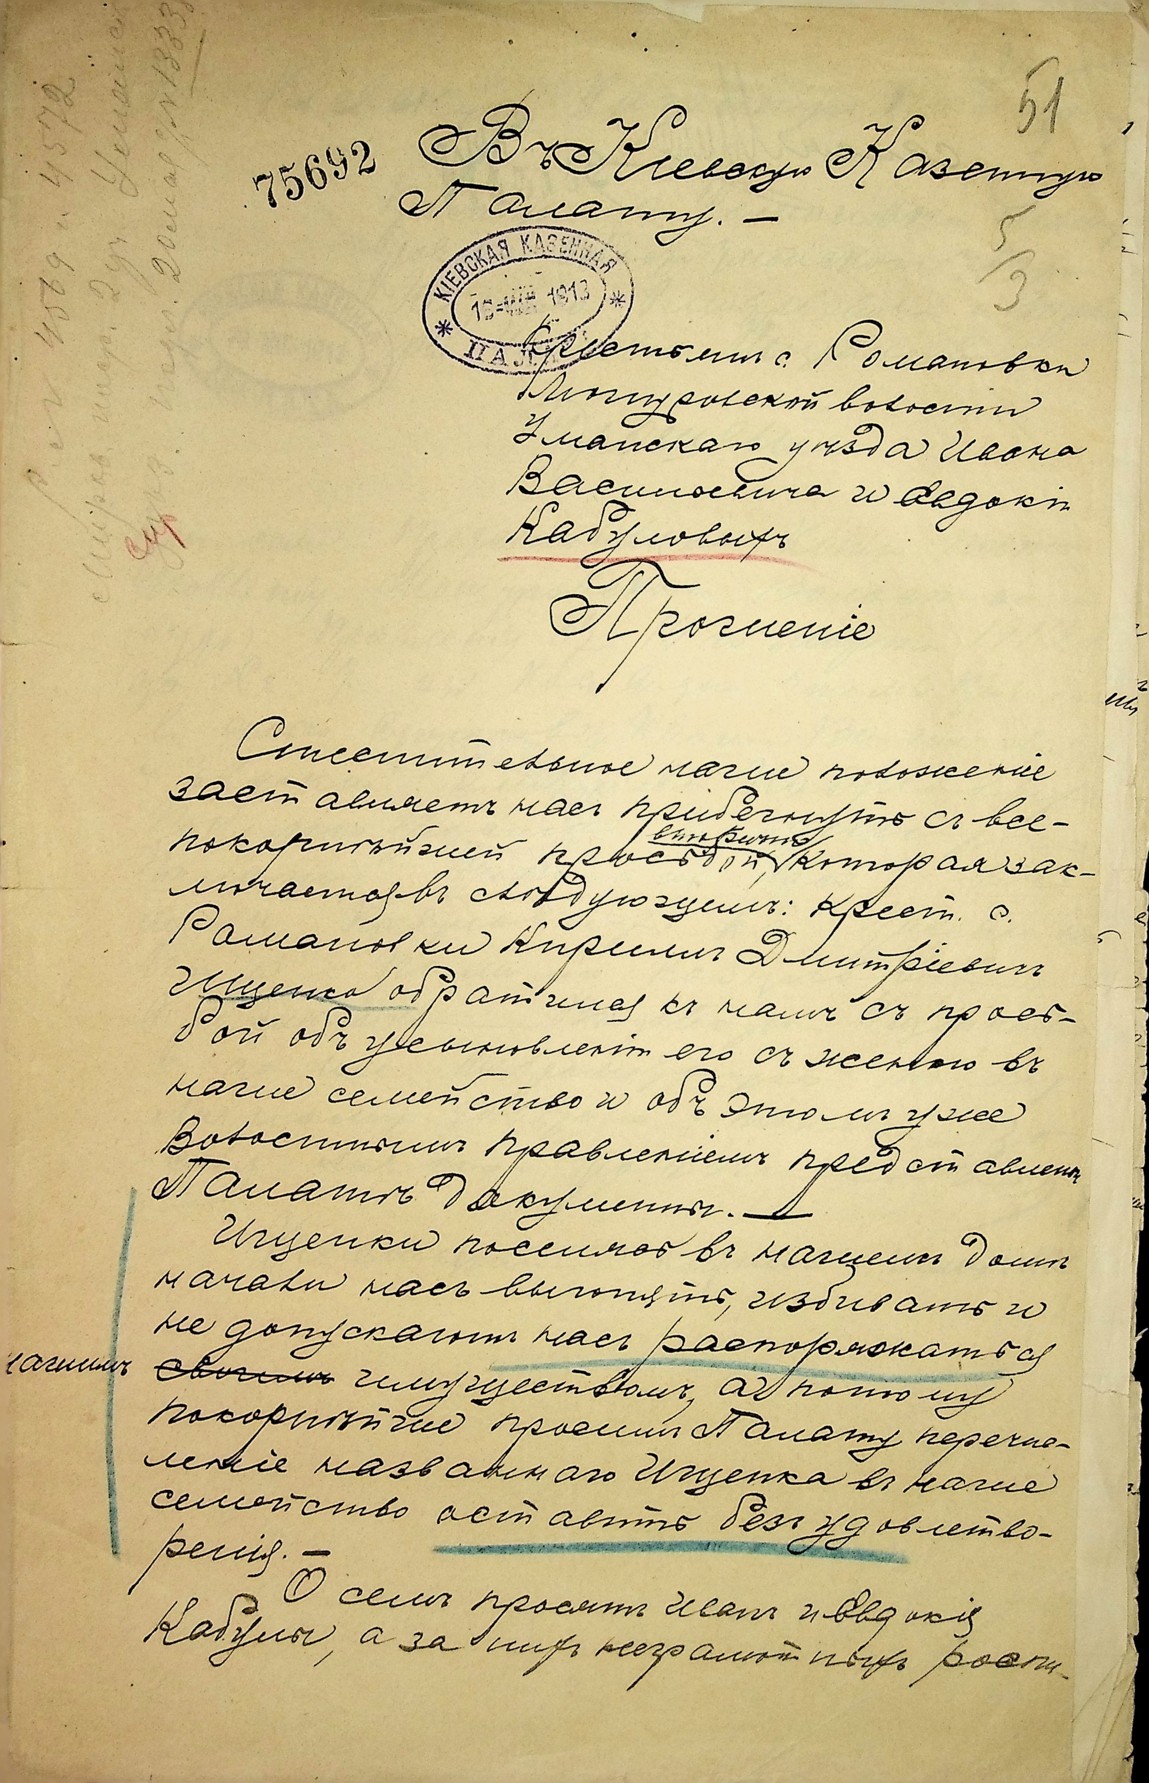 51
75692
Въ Кіевскую Казенную
Палату. —
5/3
КІЕВСКАЯ КАЗЕННАЯ
1913
ПАЛАТА
Крестьянъ с. Романовки
волости
Уманскаго уѣзда Ивана
Васильевича и Евдокіи
Кабуловыхъ
Прошеніе
Стеснительное наше положеніе
заставляетъ насъ прибегнуть съ все-
вторично
покорнѣйшей просьбой, которая зак-
лючается въ слѣдующемъ: Крест. с.
Романовки Кириллъ Дмитріевичъ
Ищенко обратился къ намъ съ прось-
бой объ усыновленіи его съ женою въ
наше семейство и объ этомъ уже
Волостнымъ правленіемъ представлены
Палатѣ документы. —
Ищенки поселясь въ нашемъ домѣ
начали насъ выгонять, избивать и
не допускаютъ насъ распоряжаться
нашимъ
своимъ имуществомъ, а потому
покорнѣйше просимъ Палату перечис-
леніе названнаго Ищенка въ наше
семейство оставить безъ удовлетво-
ренія. —
О семъ просятъ Иванъ и Евдокія
Кабулы, а за нихъ неграмотныхъ
4569 и 4572